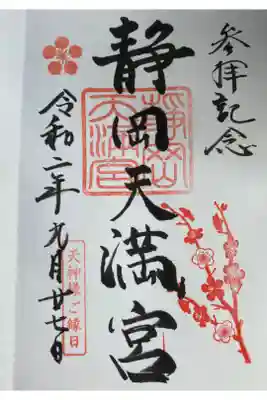 参拝記念
静岡天満宮
静岡
天満宮
令和二年九月廿七日
天神様ご縁日